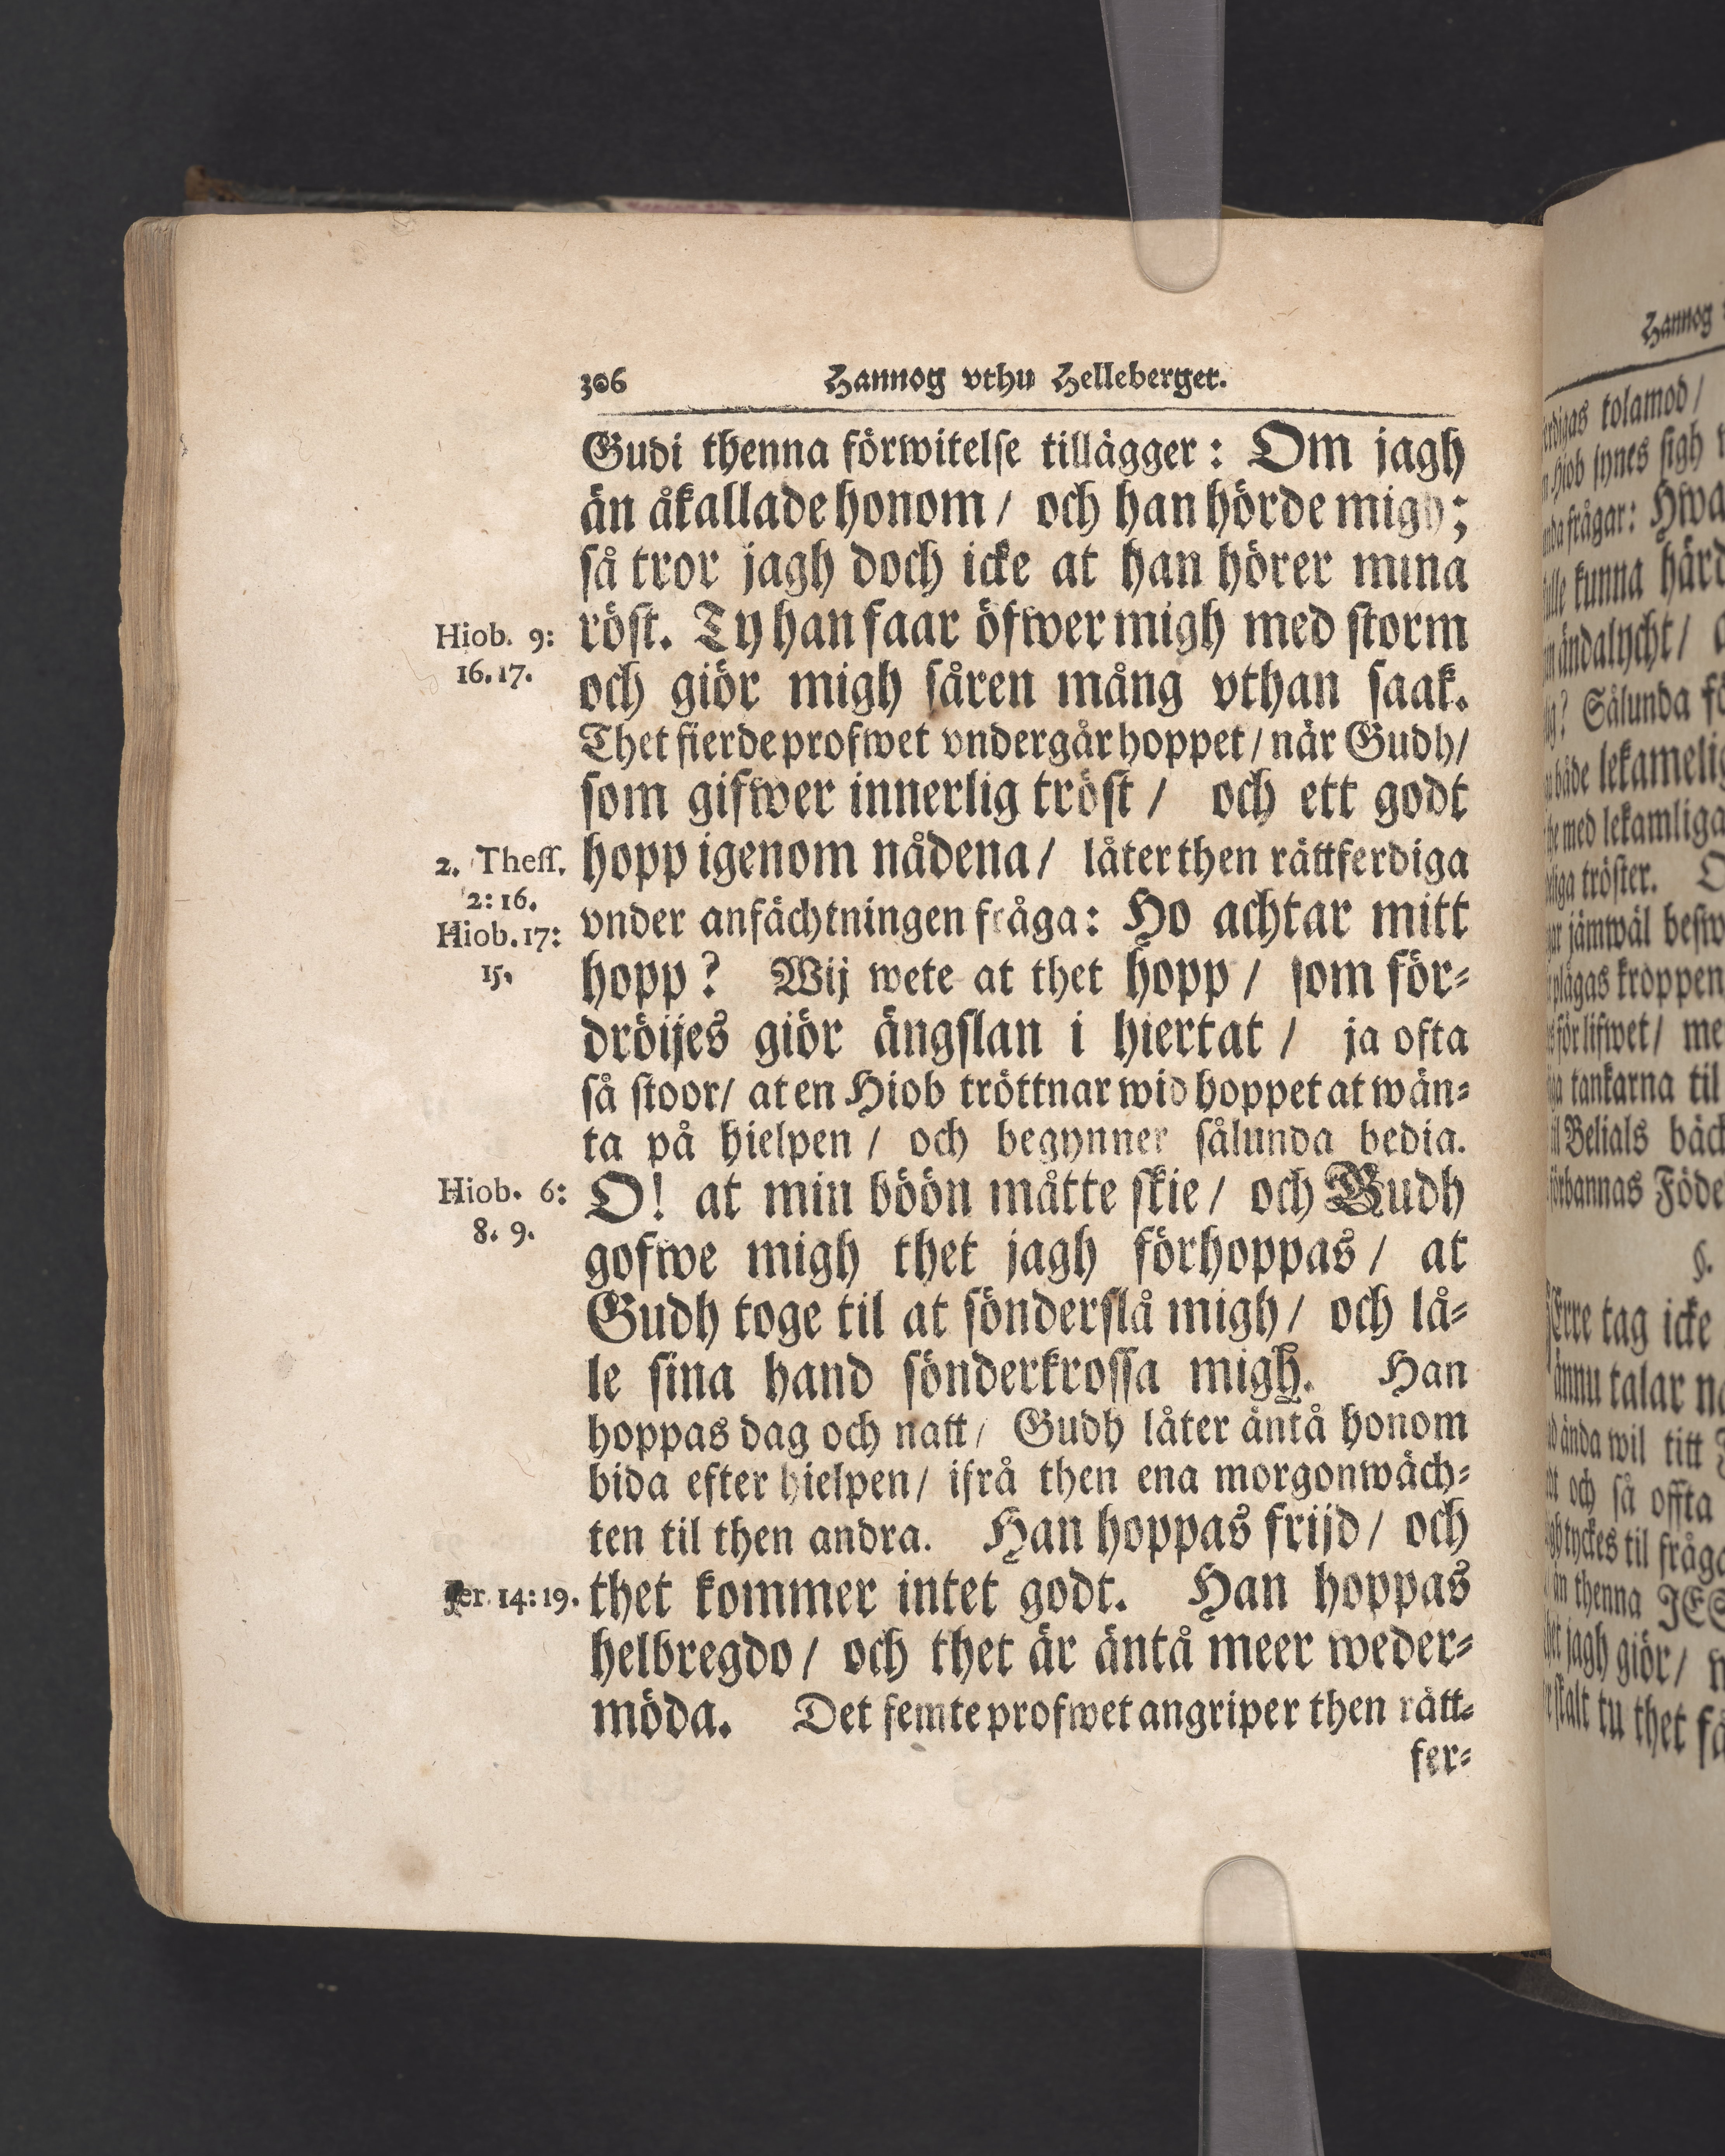 306 Hannog vthu Helleberget.
Gudi thenna förwitelse tillägger: Om jagh
än åkallade honom / och han hörde migh;
så tror jagh doch icke at han hörer mina
röst. Ty han faar öfwer migh med storm
Hiob. 9:
16. 17.
och giör migh såren mång vthan saak.
Thet fierde profwet vndergår hoppet / när Gudh /
som gifwer innerlig tröst / och ett godt
hopp igenom nådena / låter then rättferdiga
2. Thess.
2: 16.
vnder anfächtningen fråga: Ho achtar mitt
Hiob. 17:
15.
hopp? Wij wete at thet hopp / som för-
dröijes giör ängslan i hiertat / ja ofta
så stoor / at en Hiob tröttnar wid hoppet at wän-
ta på hielpen / och begynner sålunda bedia.
O! at min böön måtte skie / och Gudh
Hiob. 6:
8. 9.
gofwe migh thet jagh förhoppas / at
Gudh toge til at sönderslå migh / och lå-
le sina hand sönderkrossa migh. Han
hoppas dag och natt / Gudh låter äntå honom
bida efter hielpen / ifrå then ena morgonwäch-
ten til then andra. Han hoppas frijd / och
thet kommer intet godt. Han hoppas
Jer. 14: 19.
helbregdo / och thet är äntå meer weder-
möda. Det femte profwet angriper then rätt-
fer-
Hannog
tolamod /
Hiob synes sigh
frågar: Hwa
kunna härd
ändalycht /
Sålunda fö
både lekamelig
med lekamliga
tröster.
jämwäl besw
plågas kroppen
för lifwet / me
tankarna til
Belials bäck
förbannas Föde
§.
tag icke
ännu talar
ända wil titt
och så offta
tyckes til fråga
än thenna JES
jagh giör /
tu thet få